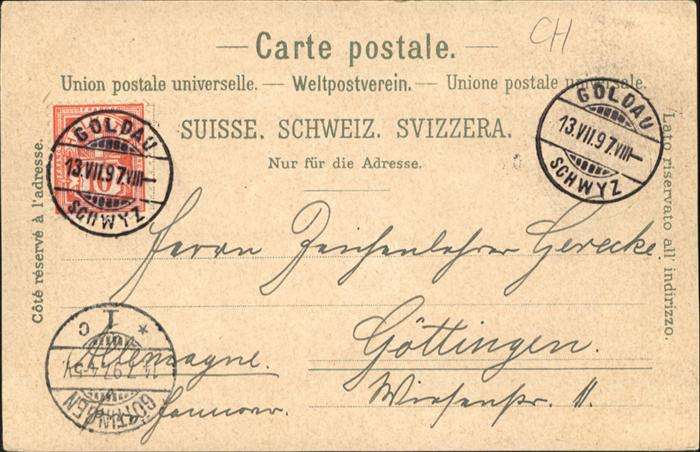 CH
— Carte postale. —
Union postale universelle. — Weltpostverein. — Unione postale universale.
SUISSE. SCHWEIZ. SVIZZERA.
Nur für die Adresse.
Côté réservé à l'adresse.
Lato riservato all' indirizzo.
10
GOLDAU
13.VII.97.VIII—
SCHWYZ
GOLDAU
13.VII.97.VIII—
SCHWYZ
Herrn Zeichenlehrer Gerecke.
Göttingen.
Allemagne.
Wiesenstr. 11.
Hannover.
GÖTTINGEN
14.7.97.4-5N
I
* c